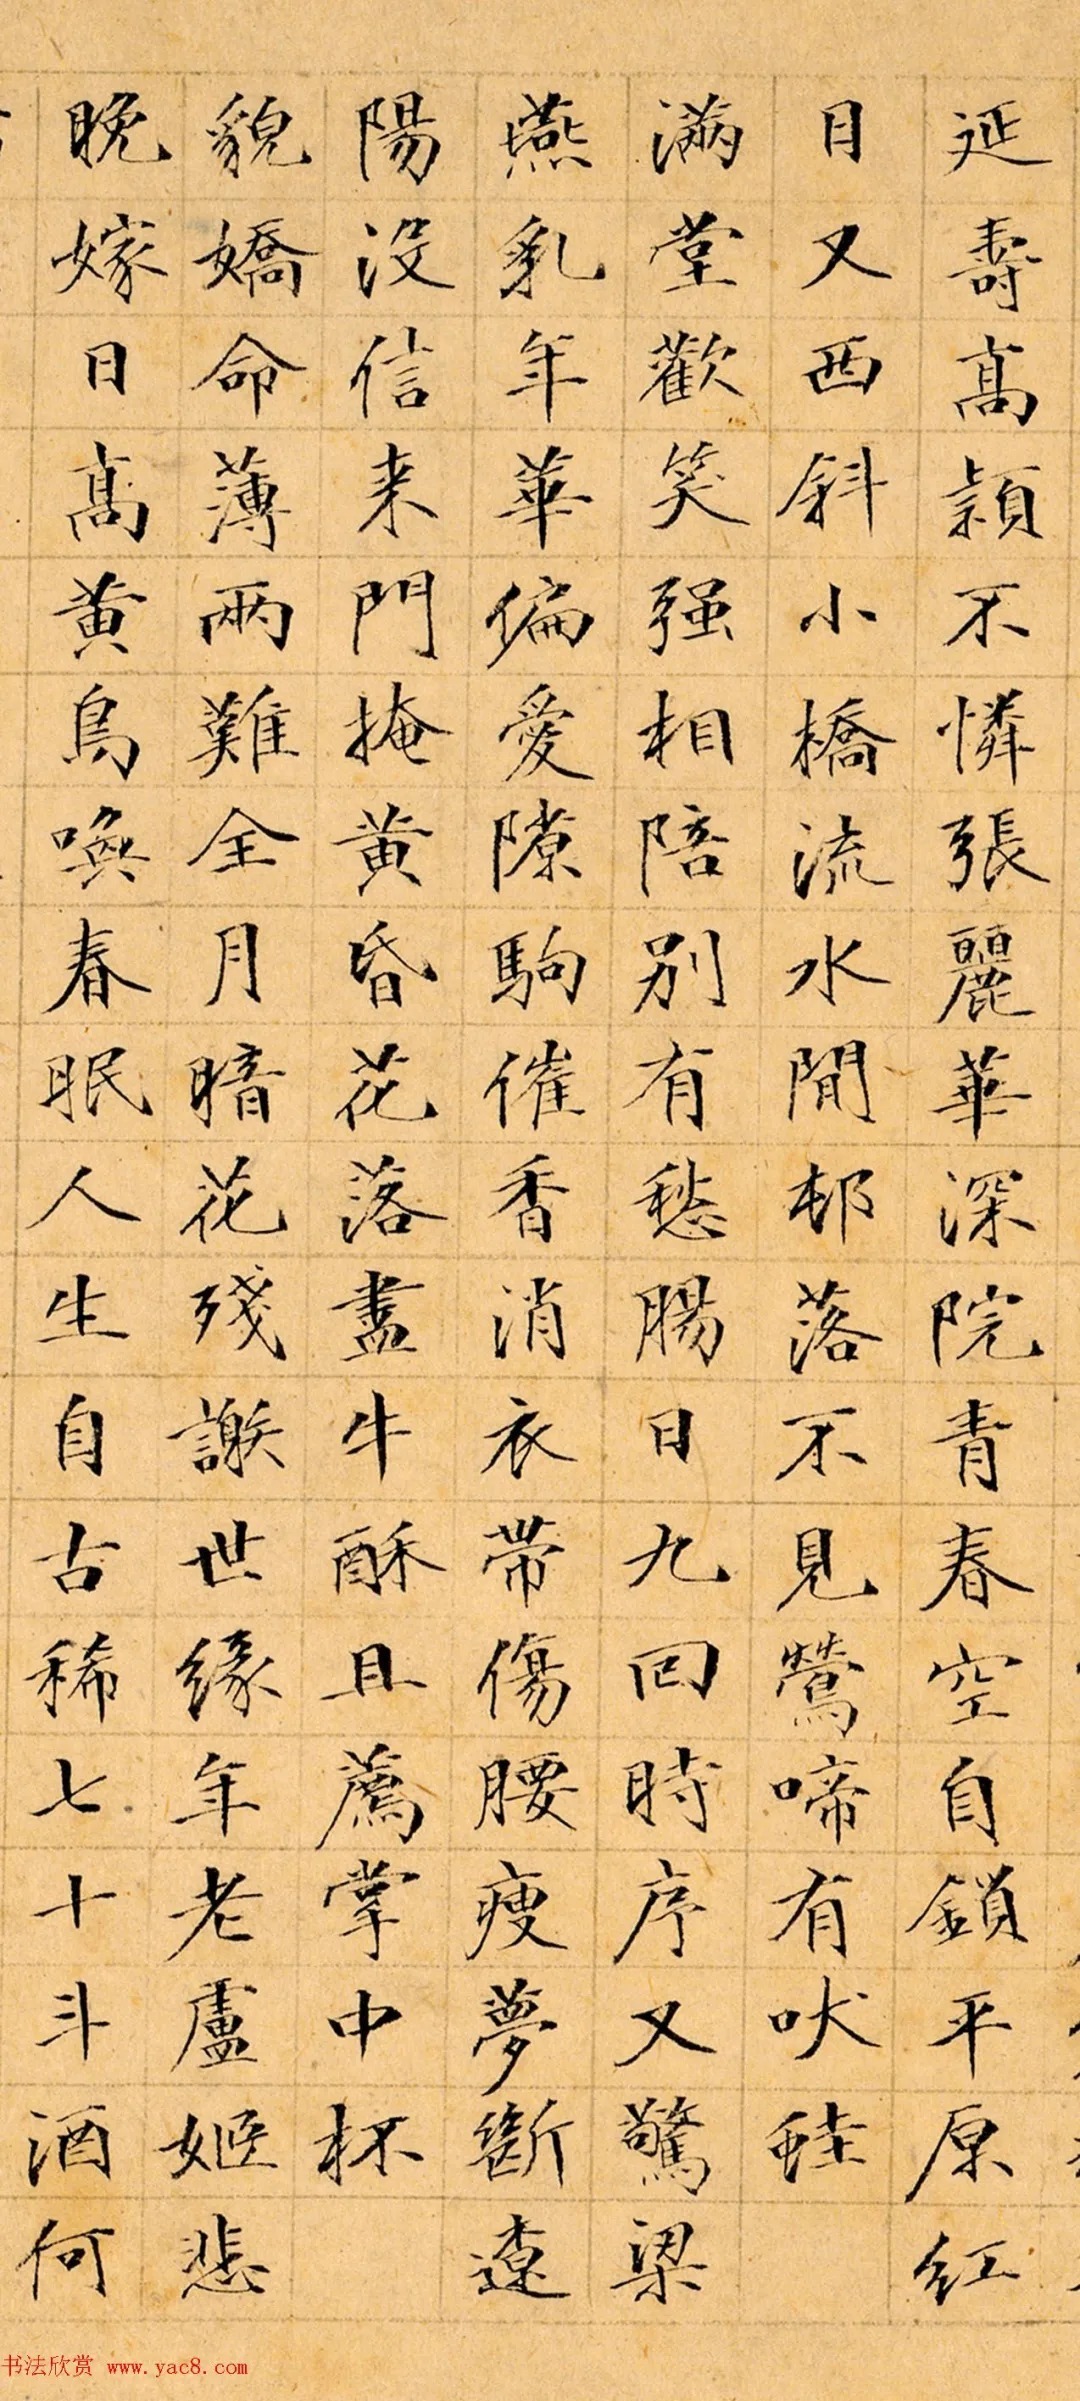 延壽高潁不憐張麗華深院青春空自鎖平原紅
日又西斜小橋流水閒邨落不見鶯啼有吠蛙
滿堂歡笑强相陪別有愁腸日九回時序又驚梁
燕乳年華偏愛隙駒催香消衣帶傷腰瘦夢斷遼
陽没信来門掩黄昏花落盡牛酥且薦掌中杯
貌嬌命薄兩難全月暗花殘謝世緣年老盧姬悲
晚嫁日高黄鳥喚春眠人生自古稀七十斗酒何
书法欣赏 www.yac8.com